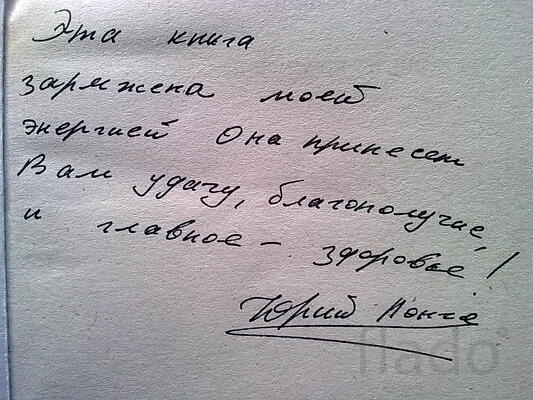 Эта книга
заряжена моей
энергией Она принесет
Вам удачу, благополучие,
и главное - здоровье!
Юрий Лонго
flado